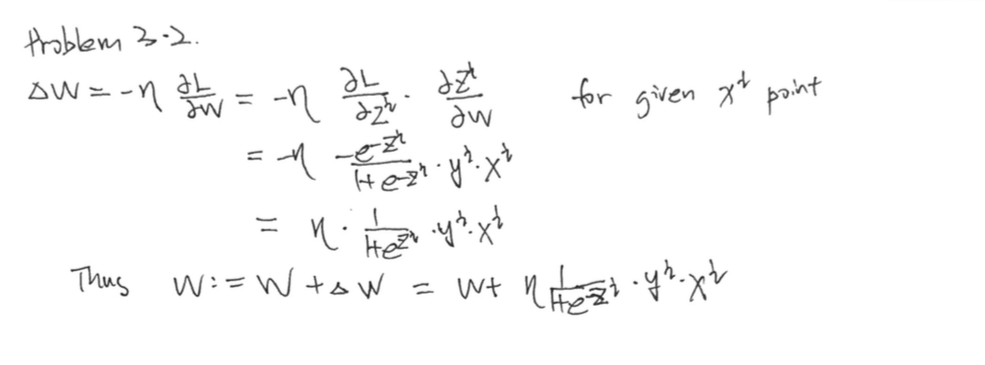 Problem 3-2.
ΔW = -η ∂L/∂W = -η ∂L/∂z^i · ∂z^i/∂W for given x^i point
= -η (-e^{-z^i})/(1+e^{-z^i}) · y^i · x^i
= η · 1/(1+e^{z^i}) · y^i · x^i
Thus W := W + ΔW = W + η 1/(1+e^{z^i}) · y^i · x^i